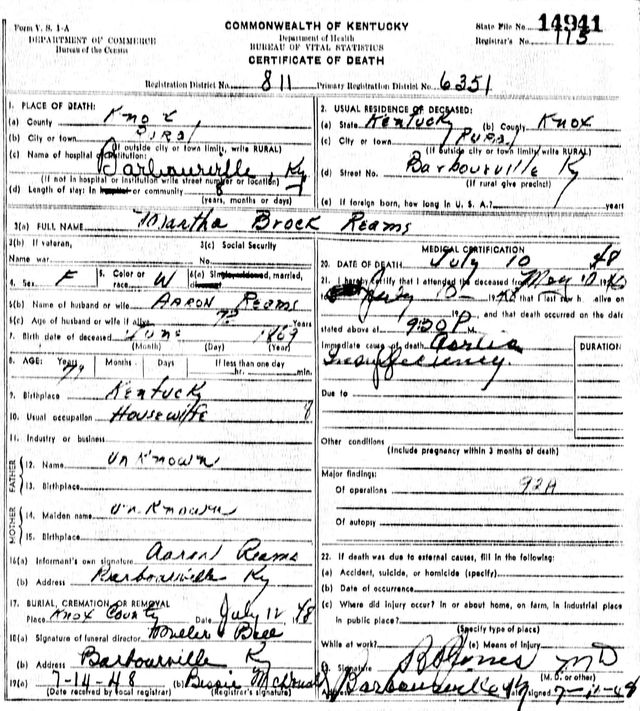 Form V. S. 1-A
DEPARTMENT OF COMMERCE
Bureau of the Census
COMMONWEALTH OF KENTUCKY
Department of Health
BUREAU OF VITAL STATISTICS
CERTIFICATE OF DEATH
State File No. 14941
Registrar's No. 115
Registration District No. 811 Primary Registration District No. 6351
1. PLACE OF DEATH:
(a) County Knox
(b) City or town Rural
(If outside city or town limits, write RURAL)
(c) Name of hospital or institution:
Barbourville, Ky
(If not in hospital or institution write street number or location)
(d) Length of stay: In hospital or community
(years, months or days)
2. USUAL RESIDENCE OF DECEASED:
(a) State Kentucky (b) County Knox
(c) City or town Rural
(If outside city or town limits, write RURAL)
(d) Street No. Barbourville Ky
(If rural give precinct)
(e) If foreign born, how long in U. S. A.? years
3(a) FULL NAME Martha Brock Reams
3(b) If veteran,
Name war
3(c) Social Security
No.
4. Sex F
5. Color or
race W
6(a) Single, widowed, married,
divorced
6(b) Name of husband or wife Aaron Reams
6(c) Age of husband or wife if alive 72 Years
7. Birth date of deceased June 1869
(Month) (Day) (Year)
8. AGE: Years 79 Months Days If less than one day
hr. min.
9. Birthplace Kentucky
10. Usual occupation Housewife 8
11. Industry or business
FATHER
12. Name Unknown
13. Birthplace
MOTHER
14. Maiden name Unknown
15. Birthplace
16(a) Informent's own signature Aaron Reams
(b) Address Barbourville Ky
17. BURIAL, CREMATION OR REMOVAL
Place Knox County Date July 12 1948
18(a) Signature of funeral director
(b) Address Barbourville Ky
19(a) 7-14-48 (b) Bessie McDonald
(Date received by local registrar) (Registrar's signature)
MEDICAL CERTIFICATION
20. DATE OF DEATH July 10 48
21. I hereby certify that I attended the deceased from May 10 1948
July 10 1948 that I last saw h alive on
19 , and that death occurred on the date
stated above at 9:20 P M.
Immediate cause of death Aortic
Insufficiency.
DURATION
Due to
Other conditions
(Include pregnancy within 3 months of death)
Major findings:
Of operations 92A
Of autopsy
22. If death was due to external causes, fill in the following:
(a) Accident, suicide, or homicide (specify)
(b) Date of occurrence
(c) Where did injury occur? In or about home, on farm, in industrial place
in public place?
(Specify type of place)
While at work? (e) Means of injury
Signature Jones MD
(M. D. or other)
Address Barbourville Ky Date signed 7-11-48